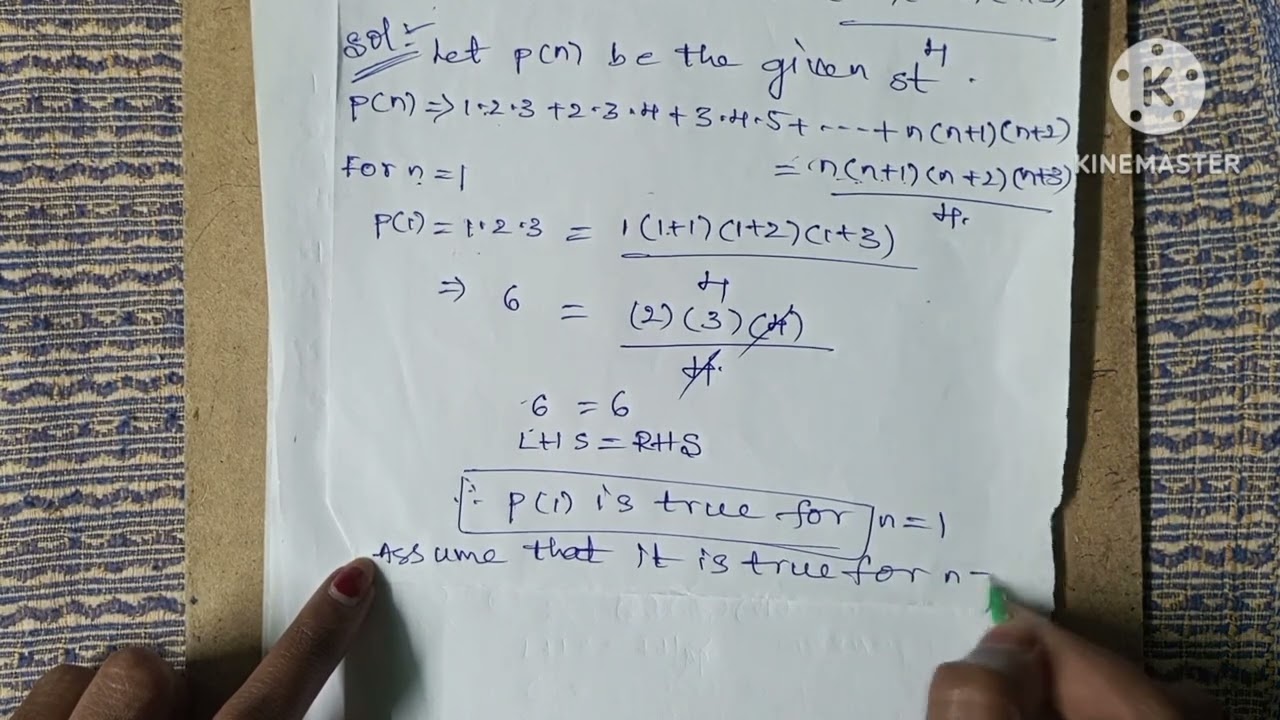 4
Sol:- Let p(n) be the given st.
p(n) => 1.2.3 + 2.3.4 + 3.4.5 + ---- + n(n+1)(n+2)
= n(n+1)(n+2)(n+3)
4.
for n = 1
p(1) = 1.2.3 = 1(1+1)(1+2)(1+3)
4
=> 6 = (2)(3)(4)
4.
6 = 6
LHS = RHS
∴ p(1) is true for n = 1
Assume that it is true for n =
K
KINEMASTER